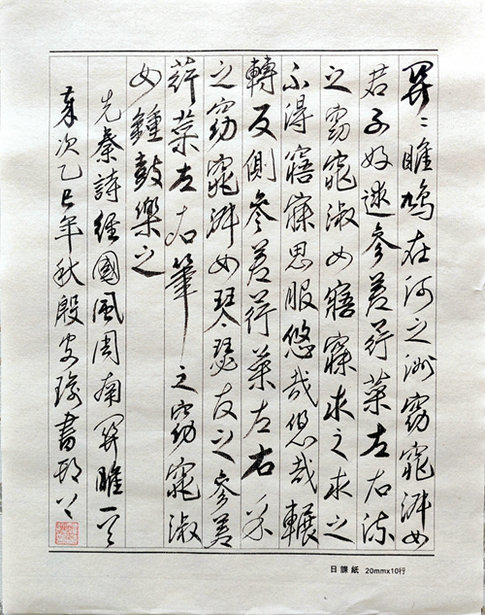 關〻雎鳩在河之洲窈窕淑女
君子好逑參差荇菜左右流
之窈窕淑女寤寐求之求之
不得寤寐思服悠哉悠哉輾
轉反側參差荇菜左右采
之窈窕淑女琴瑟友之參差
荇菜左右筆之窈窕淑
女鍾鼓樂之
先秦詩經國風周南關雎一
次乙巳年秋殷書
日課紙 20mmx10行